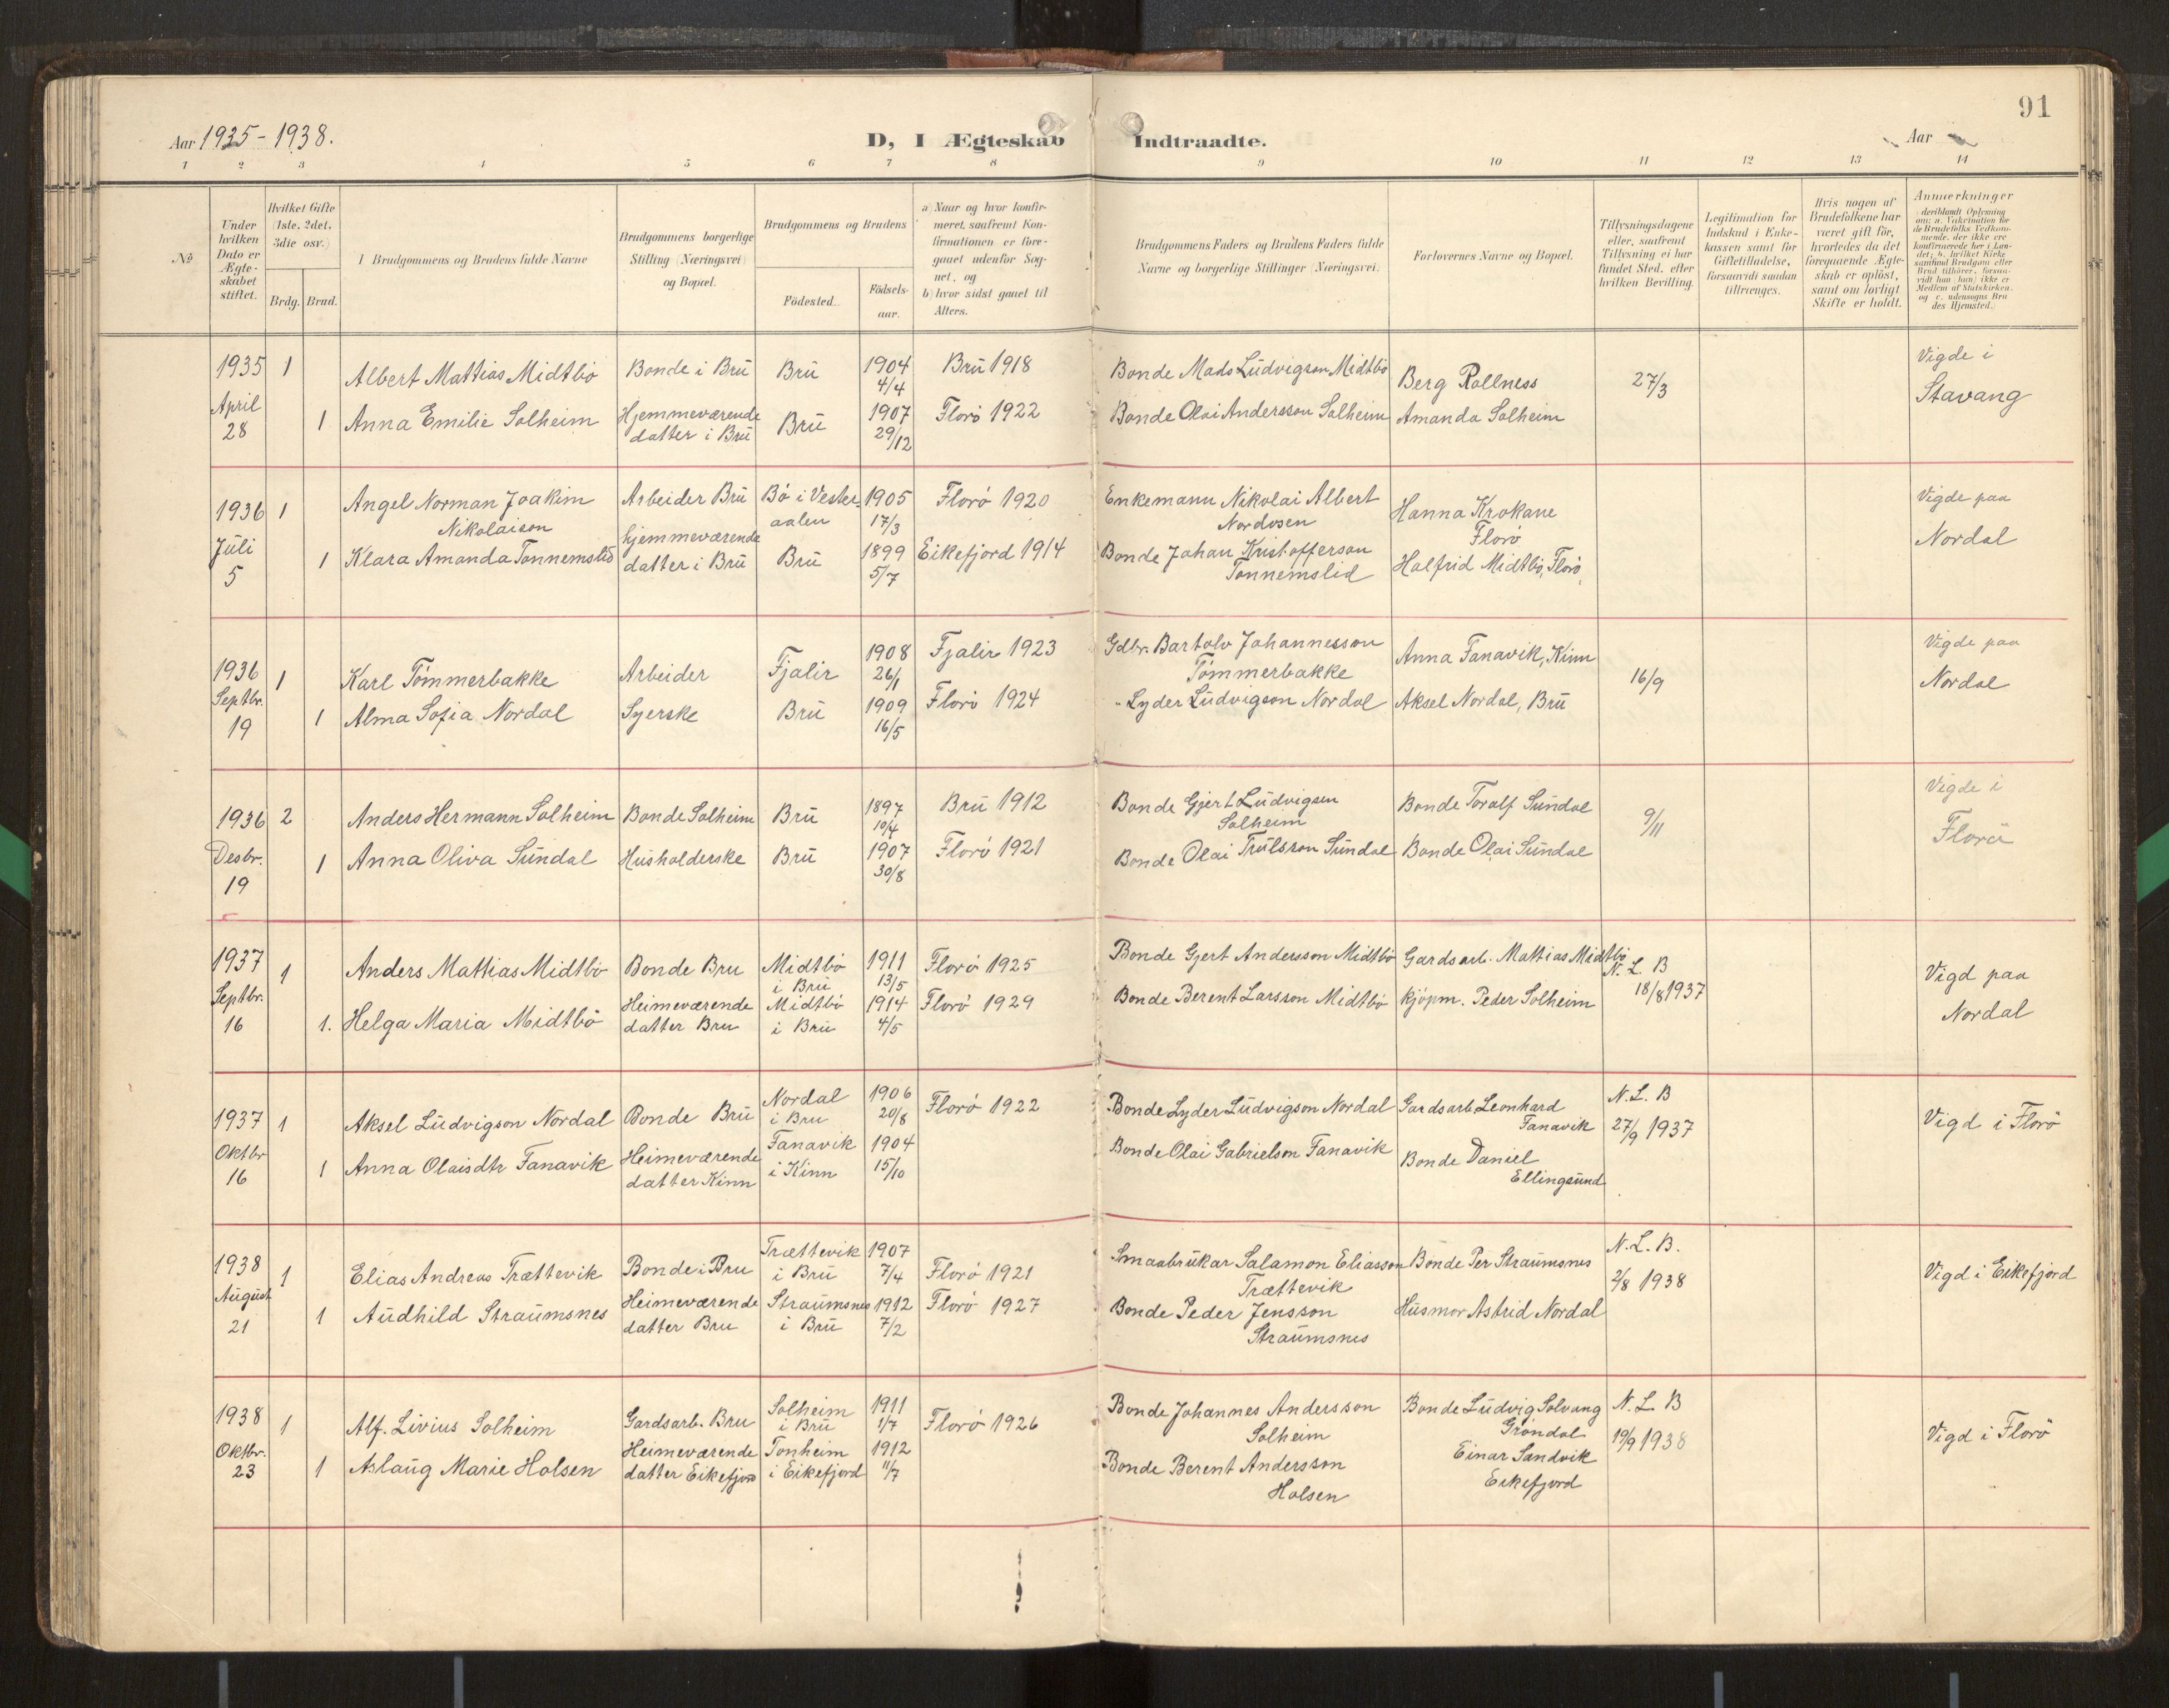 91
Aar 1935 - 1938.
D, I Ægteskab Indtraadte.
Aar
1 2 3 4 5 6 7 8 9 10 11 12 13 14
No
Under hvilken Dato er Ægteskabet stiftet.
Hvilket Gifte (1ste, 2det, 3die osv.)
Brdg. Brud.
Brudgommens og Brudens fulde Navne
Brudgommens borgerlige Stilling (Næringsvei) og Bopæl.
Brudgommens og Brudens
Födested.
Födsels-aar.
a) Naar og hvor konfirmeret, saafremt Konfirmationen er foregaaet udenfor Sognet, og
b) hvor sidst gaaet til Alters.
Brudgommens Faders og Brudens Faders fulde Navne og borgerlige Stillinger (Næringsvei).
Forlovernes Navne og Bopæl.
Tillysningsdagene eller, saafremt Tillysning ei har fundet Sted, efter hvilken Bevilling.
Legitimation for Indskud i Enkekassen samt for Giftetilladelse, forsaavidt saadan tiltrænges.
Hvis nogen af Brudefolkene har været gift för, hvorledes da det foregaaende Ægteskab er oplöst, samt om lovligt Skifte er holdt.
Anmerkninger
deriblandt Oplysning om: a. Vakcination for de Brudefolks Vedkommende, der ikke ere konfirmerede her i Landet; b. hvilket Kirkesamfund Brudgom eller Brud tilhörer, forsaavidt han (hun) ikke er Medlem af Statskirken, og c. udensogns Brudes Hjemsted.
1935 April 28
1 Albert Mattias Midtbö Bonde i Brü Brü 1904 4/4 Brü 1918 Bonde Mads Lüdvigson Midtbö Berg Rollness 27/3 Vigde i Stavang
1 Anna Emilie Solheim Hjemmeværende datter i Brü Brü 1907 29/12 Florö 1922 Bonde Olai Andersson Solheim Amanda Solheim
1936 Jüli 5
1 Angel Norman Joakim Nikolaison Arbeider Brü Bö i Vesteraalen 1905 17/3 Florö 1920 Enkemann Nikolai Albert Nordosen Hanna Krokane Florö Vigde paa Nordal
1 Klara Amanda Tonnemslid hjemmeværende datter i Brü Brü 1899 5/7 Eikefjord 1914 Bonde Johan Kristofferson Tonnemslid Halfrid Midtbö, Florö,
1936 Septbr. 19
1 Karl Tömmerbakke Arbeider Fjalir 1908 26/1 Fjalir 1923 Gdbr. Bartolv Johannesson Tömmerbakke Anna Fanavik, Kinn 16/9 Vigde paa Nordal
1 Alma Sofia Nordal Syerske Brü 1909 16/5 Florö 1924 " Lyder Lüdvigson Nordal Aksel Nordal, Brü
1936 Desbr. 19
2 Anders Hermann Solheim Bonde Solheim Brü 1897 10/4 Brü 1912 Bonde Gjert Lüdvigsen Solheim Bonde Toralf Sündal 9/11 Vigde i Florö
1 Anna Oliva Sündal Husholderske Brü 1907 30/8 Florö 1921 Bonde Olai Trülsson Sündal Bonde Olai Sündal
1937 Septbr. 16
1 Anders Mattias Midtbö Bonde Bru Midtbö i Brü 1911 13/5 Florö 1925 Bonde Gjert Andersson Midtbö Gardsarb. Mattias Midtbö N. L. B 18/8 1937 Vigd paa Nordal
1. Helga Maria Midtbö Heimeværende datter Bru Midtbö i Brü 1914 4/5 Florö 1929 Bonde Berent Larsson Midtbö Kjöpm. Peder Solheim
1937 Oktbr 16
1 Aksel Lüdvigson Nordal Bonde Brü Nordal i Bru 1906 20/8 Florö 1922 Bonde Lyder Lüdvigson Nordal Gardsarb Leonhard Fanavik N. L. B 27/9 1937 Vigd i Florö
1 Anna Olaisdtr Fanavik Heimeværende datter Kinn Fanavik i Kinn 1904 15/10 Bonde Olai Gabrielson Fanavik Bonde Daniel Ellingsünd
1938 Aügust 21
1 Elias Andreas Trættevik Bonde i Bru Trættevik i Brü 1907 7/4 Florö 1921 Smaabrükar Salamon Eliasson Trættevik Bonde Per Straümsnes N. L. B. 2/8 1938 Vigd i Eikefjord
1 Aüdhild Straümsnes Heimeværende datter Bru Straümsnes i Brü 1912 7/2 Florö 1927 Bonde Peder Jensson Straümsnes Hüsmor Astrid Nordal
1938 Oktbr. 23
1 Alf. Livius Solheim Gardsarb. Bru Solheim i Brü 1911 1/7 Florö 1926 Bonde Johannes Andersson Solheim Bonde Lüdvig Solvang Gröndal N. L. B 19/9 1938 Vigd i Florö
1 Aslaüg Marie Holsen Heimeværende datter Eikefjord Tonheim i Eikefjord 1912 11/7 Bonde Berent Andersson Holsen Einar Sandvik Eikefjord